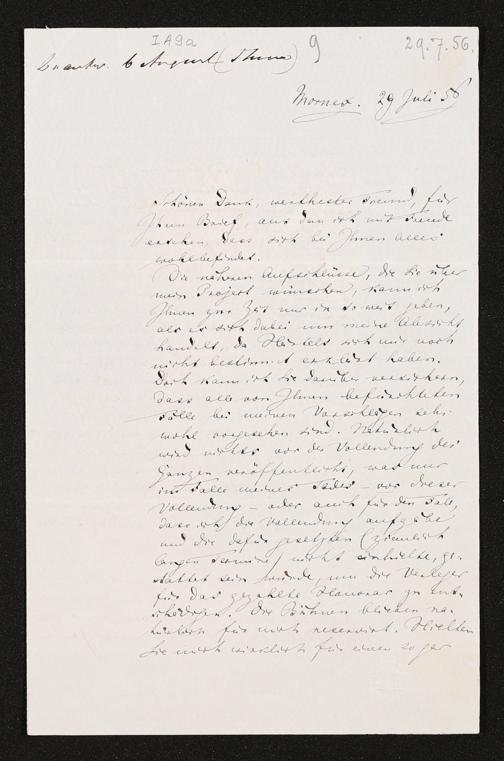 I A 9 a
9
29.7.56.
6 August (Thun)
Mornex. 29 Juli 56
Schönen Dank, werthester Freund, für
Ihren Brief, aus dem ich mit Freude
ersehen, dass sich bei Ihnen alles
wohlbefindet.
Die näheren Aufschlüsse, die Sie über
mein Project wünschen, kann ich
Ihnen zur Zeit nur in so weit geben,
als es sich dabei um meine Absicht
handelt, da Härtels sich mir noch
nicht bestimmt erklärt haben.
Doch kann ich Sie darüber versichern,
dass alle von Ihnen befürchteten
Fälle bei meinen Vorschlägen sehr
wohl vorgesehen sind. Natürlich
wird nichts vor der Vollendung des
Ganzen veröffentlicht, was nur
im Falle meines Todes – vor dieser
Vollendung – oder auch für den Fall,
dass ich die Vollendung aufgäbe
und die dafür gesetzten (ziemlich
langen Termine) nicht einhielte, ge-
stattet sein würde, um die Verleger
für das gezahlte Honorar zu ent-
schädigen. Die Bühnen blieben na-
türlich für mich reservirt. Hielten
Sie mich wirklich für einen so gar